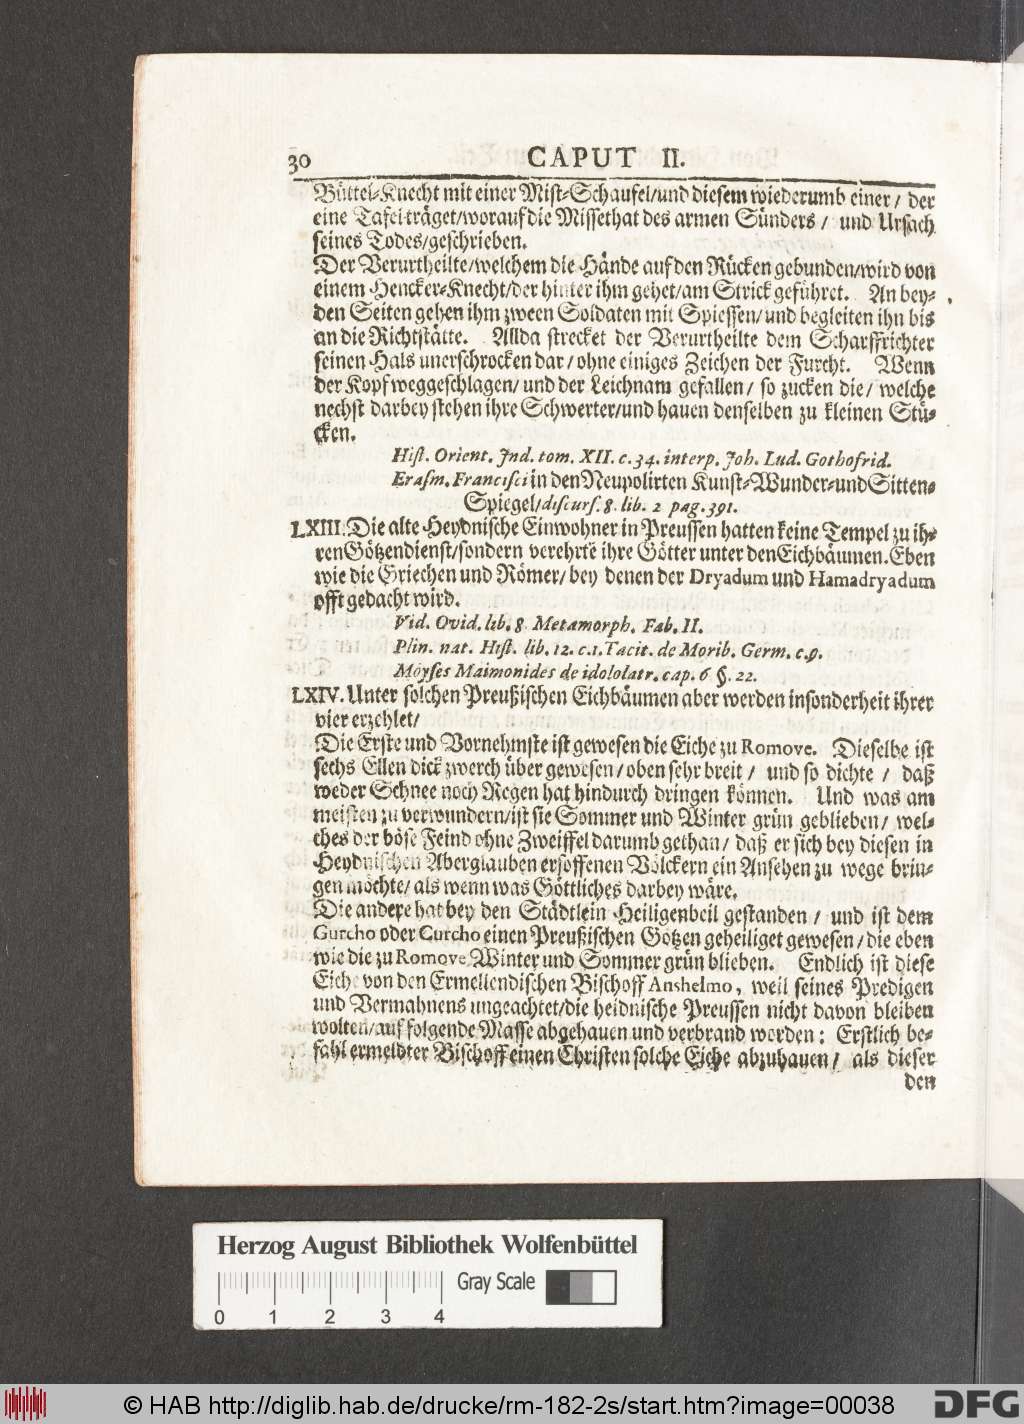 30 CAPUT II.
Büttel-Knecht mit einer Mist-Schaufel/und diesem wiederumb einer / der
eine Tafel träget/worauf die Missethat des armen Sünders / und Ursach
seines Todes/geschrieben.
Der Verurtheilte/welchem die Hände auf den Rücken gebunden/wird von
einem Hencker-Knecht/der hinter ihm gehet/am Strick geführet. An bey-
den Seiten gehen ihm zween Soldaten mit Spiessen/und begleiten ihn bis
an die Richtstätte. Allda strecket der Verurtheilte dem Scharffrichter
seinen Hals unerschrocken dar / ohne einiges Zeichen der Furcht. Wenn
der Kopf weggeschlagen/ und der Leichnam gefallen / so zucken die / welche
nechst darbey stehen ihre Schwerter/und hauen denselben zu kleinen Stü-
cken.
Hist. Orient. Ind. tom. XII. c. 34. interp. Joh. Lud. Gothofrid.
Erasm. Francisci in den Neupolirten Kunst-Wunder-und Sitten-
Spiegel/discurs. 8. lib. 2 pag. 391.
LXIII. Die alte Heydnische Einwohner in Preussen hatten keine Tempel zu ih-
ren Götzendienst/sondern verehrte ihre Götter unter den Eichbäumen. Eben
wie die Griechen und Römer/ bey denen der Dryadum und Hamadryadum
offt gedacht wird.
Vid. Ovid. lib. 8 Metamorph. Fab. II.
Plin. nat. Hist. lib. 12. c. 1. Tacit. de Morib. Germ. c. 9.
Moyses Maimonides de idololatr. cap. 6 §. 22.
LXIV. Unter solchen Preußischen Eichbäumen aber werden insonderheit ihrer
vier erzehlet/
Die Erste und Vornehmste ist gewesen die Eiche zu Romove. Dieselbe ist
sechs Ellen dick zwerch über gewesen / oben sehr breit / und so dichte / daß
weder Schnee noch Regen hat hindurch dringen können. Und was am
meisten zu verwundern/ist sie Sommer und Winter grün geblieben / wel-
ches der böse Feind ohne Zweiffel darumb gethan / daß er sich bey diesen in
Heydnischen Aberglauben ersoffenen Völckern ein Ansehen zu wege brin-
gen möchte/ als wenn was Göttliches darbey wäre.
Die andere hat bey den Städtlein Heiligenbeil gestanden / und ist dem
Gurcho oder Curcho einen Preußischen Götzen geheiliget gewesen / die eben
wie die zu Romove Winter und Sommer grün blieben. Endlich ist diese
Eiche von den Ermellendischen Bischoff Anshelmo, weil seines Predigen
und Vermahnens ungeachtet/die heidnische Preussen nicht davon bleiben
wolten/auf folgende Masse abgehauen und verbrand worden: Erstlich be-
fahl ermeldter Bischoff einen Christen solche Eiche abzuhauen / als dieser
den
Herzog August Bibliothek Wolfenbüttel
Gray Scale
0 1 2 3 4
© HAB http://diglib.hab.de/drucke/rm-182-2s/start.htm?image=00038
DFG